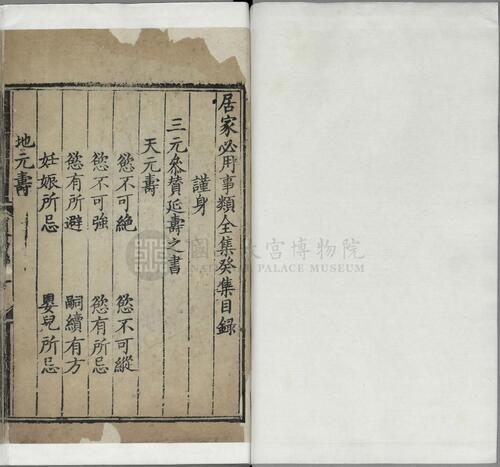 居家必用事類全集癸集目録
謹身
三元參贊延壽之書
天元壽
慾不可絶 慾不可縱
慾不可強 慾有所忌
慾有所避 嗣續有方
妊娠所忌 嬰兒所忌
地元壽
國立故宮博物院
NATIONAL PALACE MUSEUM